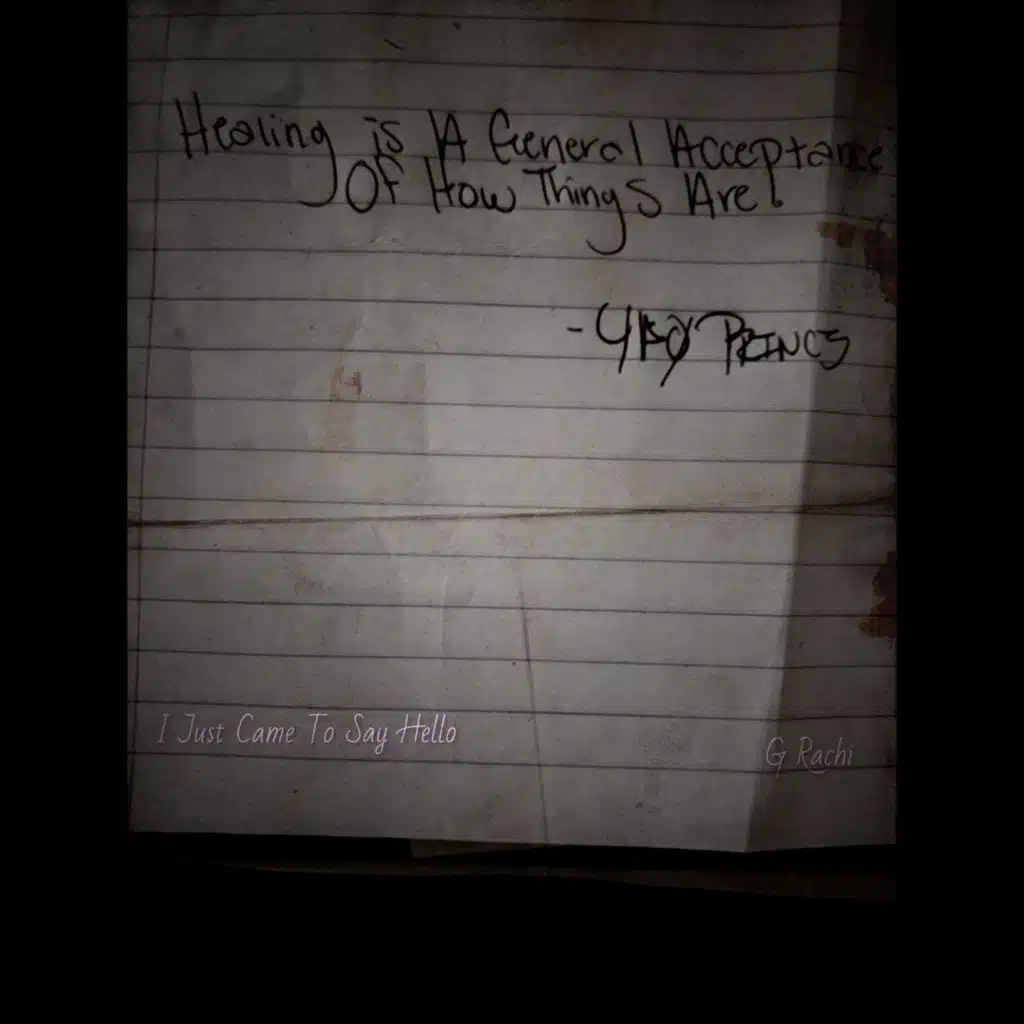 Healing is A General Acceptance
Of How Things Are!
I Just Came To Say Hello
G Rachi